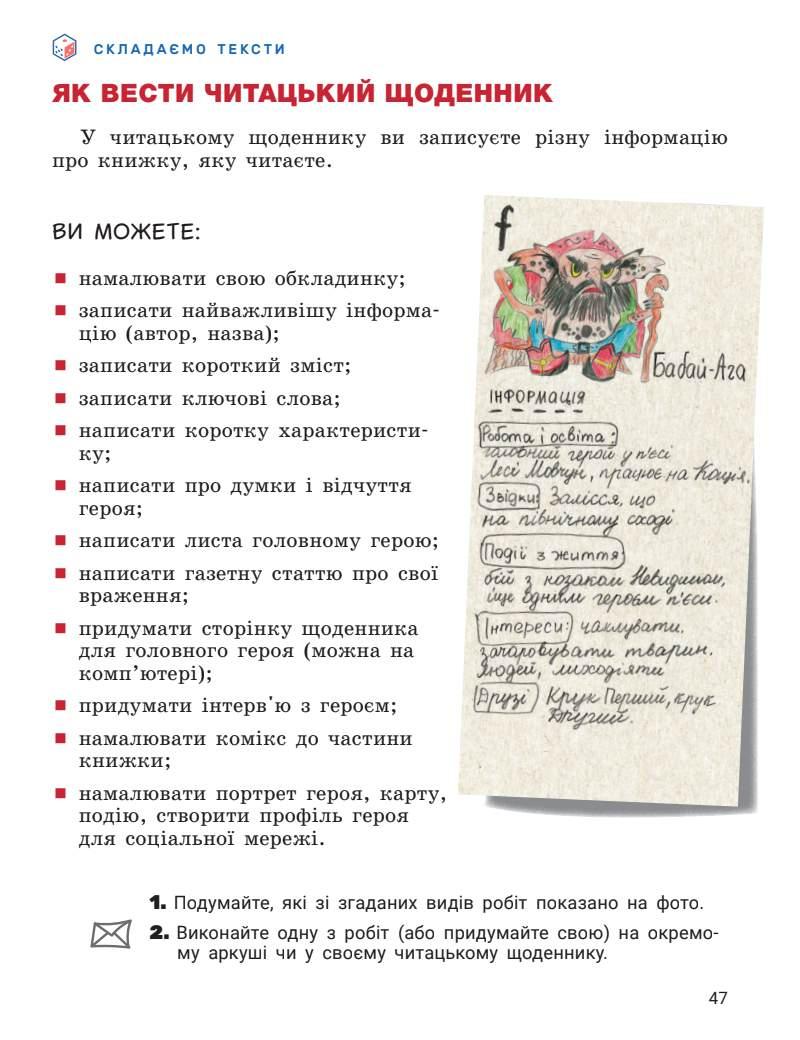 СКЛАДАЄМО ТЕКСТИ
ЯК ВЕСТИ ЧИТАЦЬКИЙ ЩОДЕННИК
У читацькому щоденнику ви записуєте різну інформацію
про книжку, яку читаєте.
ВИ МОЖЕТЕ:
намалювати свою обкладинку;
записати найважливішу інформа-
цію (автор, назва);
записати короткий зміст;
записати ключові слова;
написати коротку характеристи-
ку;
написати про думки і відчуття
героя;
написати листа головному герою;
написати газетну статтю про свої
враження;
придумати сторінку щоденника
для головного героя (можна на
комп’ютері);
придумати інтерв'ю з героєм;
намалювати комікс до частини
книжки;
намалювати портрет героя, карту,
подію, створити профіль героя
для соціальної мережі.
f
Бабай-Ага
ІНФОРМАЦІЯ
Робота і освіта:
головний герой у п'єсі
Лесі Мовчун, працює на Кощія.
Звідки: Залісся, що
на північному сході
Події з життя
бій з козаком Невидимом,
іще одним героєм п'єси.
Інтереси: чаклувати.
зачаровувати тварин.
людей, лиходіяти
Друзі Крук Перший, крук
Другий.
1. Подумайте, які зі згаданих видів робіт показано на фото.
2. Виконайте одну з робіт (або придумайте свою) на окремо-
му аркуші чи у своєму читацькому щоденнику.
47